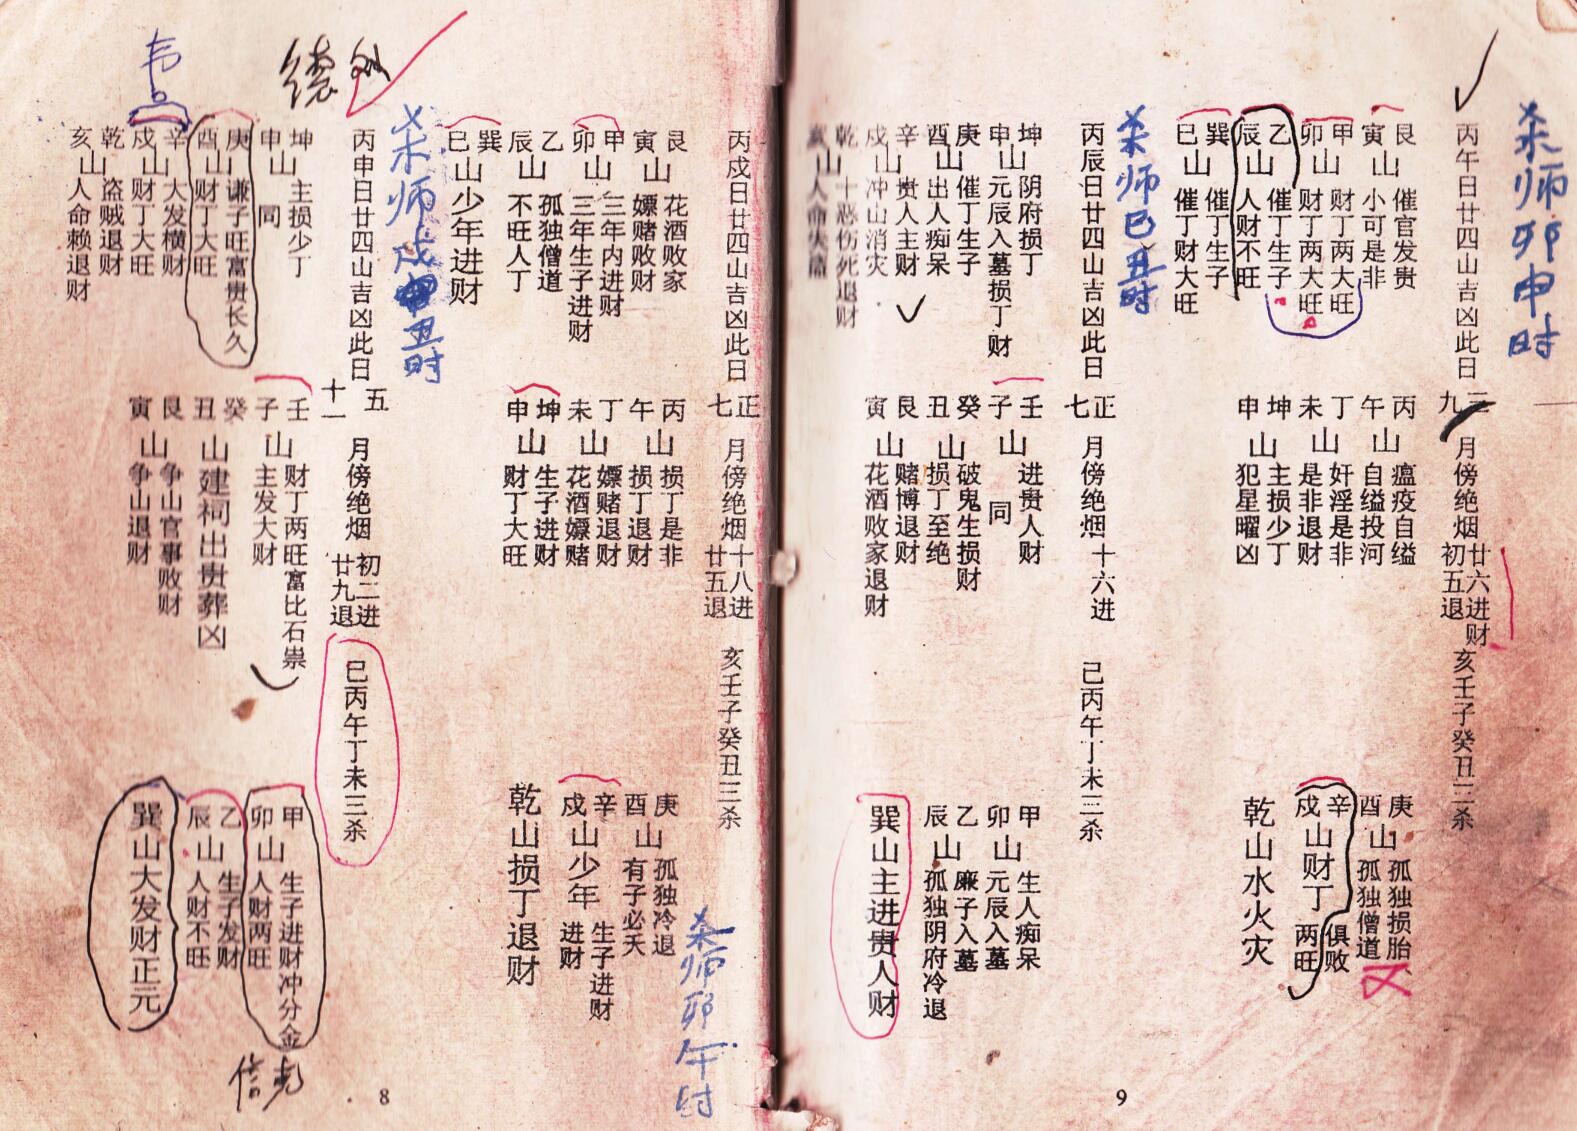 丙戌日廿四山吉凶此日正七月傍绝烟十八进廿五退亥壬子癸丑三杀
杀师卯午时
艮山花酒败家
寅山嫖赌败财
甲山三年内进财
卯山三年生子进财
乙孤独僧道
辰山不旺人丁
巽巳山少年进财
丙山损丁是非
午山损丁退财
丁山嫖赌退财
未山花酒嫖赌
坤山生子进财
申山财丁大旺
庚山孤独冷退
酉山有子必夭
辛戌山少年生子进财进财
乾山损丁退财
杀师戌丑时
丙申日廿四山吉凶此日五十一月傍绝烟初二进廿九退巳丙午丁未三杀
坤山主损少丁
申山同
庚山谦子旺富貴长久
酉山财丁大旺
辛山大发横财
戌山财丁大旺
乾山盗贼退财
亥山人命赖退财
壬山财丁两旺富比石祟
子山主发大财
癸丑山建祠出贵葬凶
艮山争山官事败财
寅山争山退财
甲山生子进财冲分金
卯山人财两旺
乙山生子发财
辰山人财不旺
巽山大发财正元
韦
德
信彪
8
杀师卯申时
丙午日廿四山吉凶此日三九月傍绝烟廿六进财初五退亥壬子癸丑三杀
艮山催官发贵
寅山小可是非
甲山财丁两大旺
卯山财丁两大旺
乙山催丁生子
辰山人财不旺
巽山催丁生子
巳山催丁财大旺
丙山瘟疫自缢
午山自缢投河
丁山奸淫是非
未山是非退财
坤山主损少丁
申山犯星曜凶
庚山孤独损胎
酉山孤独僧道
辛戌山财丁俱败两旺
乾山水火灾
杀师巳丑时
丙辰日廿四山吉凶此日正七月傍绝烟十六进巳丙午丁未三杀
坤山阴府损丁
申山元辰入墓损丁财
庚山催丁生子
酉山出人痴呆
辛山贵人主财
戌山冲山消灾
乾山十恶伤死退财
亥山人命
壬山进贵人财
子山同
癸山破鬼生损财
丑山损丁至绝
艮山赌博退财
寅山花酒败家退财
甲山生人痴呆
卯山元辰入墓
乙山廉子入墓
辰山孤独阴府冷退
巽山主进贵人财
9